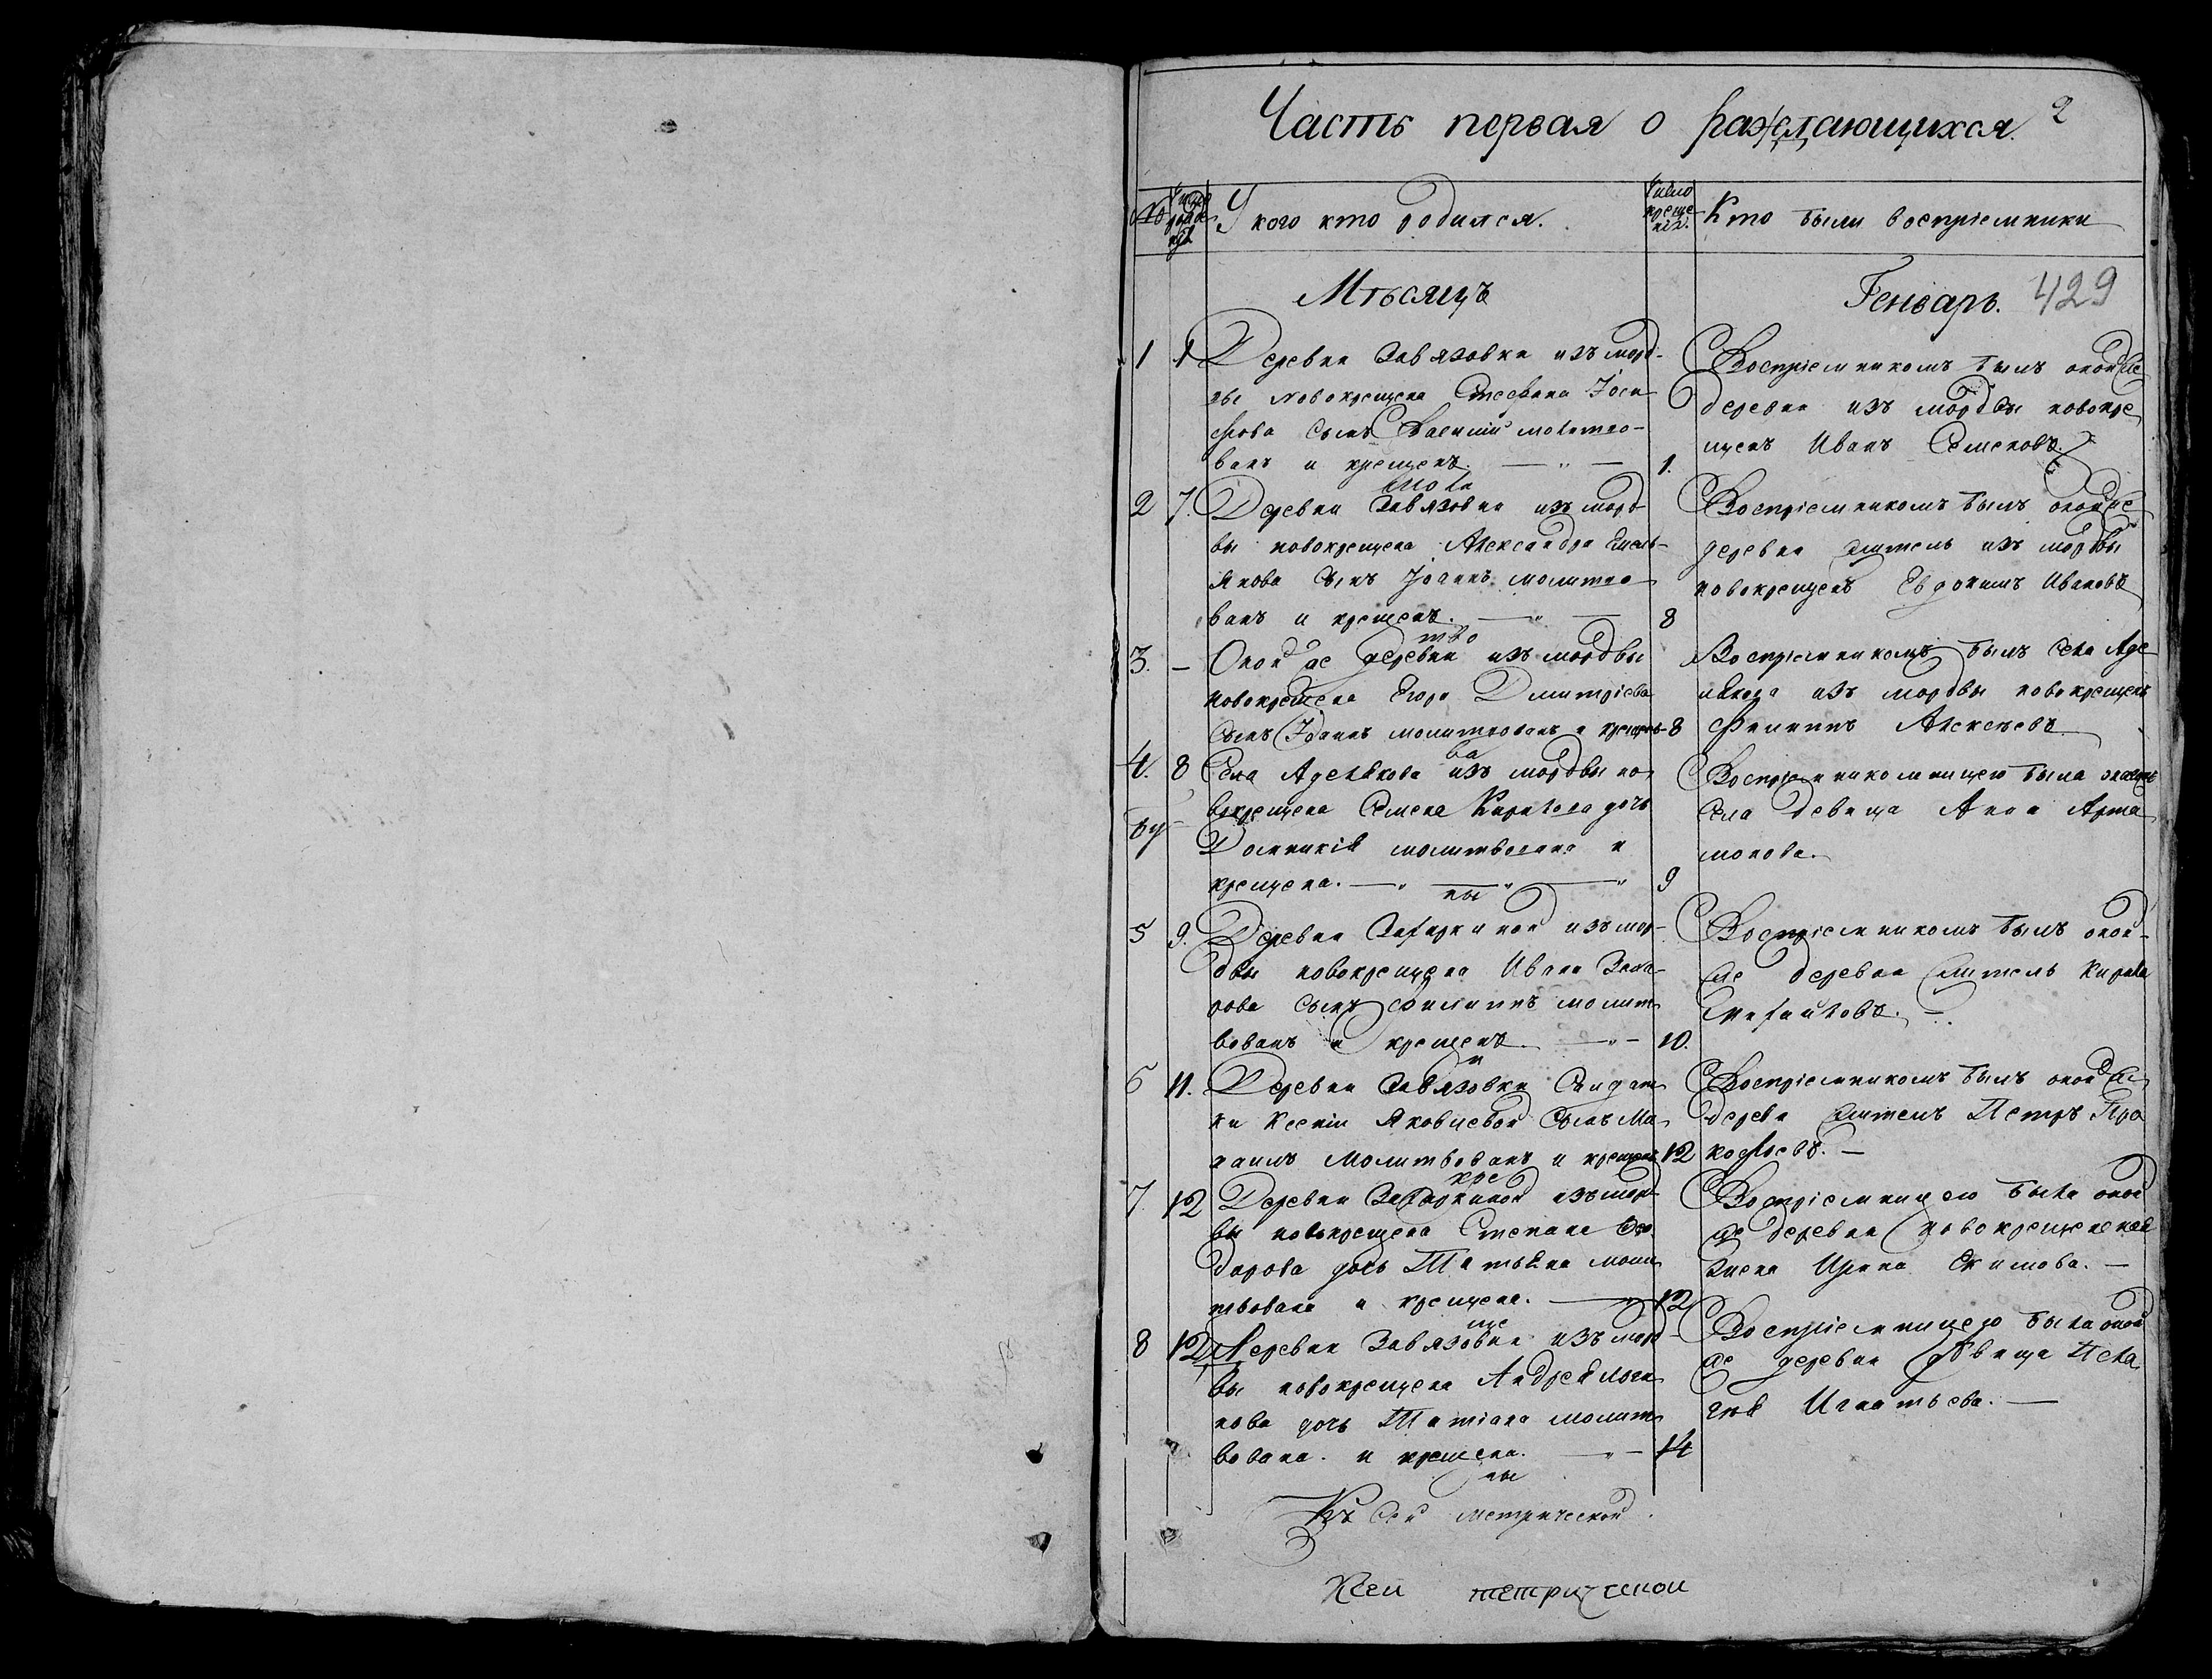 Часть первая о раждающихся. 2
№ Число рожде нія У кого кто родился. Число креще нія. Кто были воспріемники
Мѣсяцъ Генварь. 429
1 1 Деревни Завязовки изъ морд-
вы новокрещена Стефана Іоси-
фова сынъ Василій молитво-
ванъ и крещенъ. — „ — 1.
Воспріемникомъ былъ оной же
деревни изъ мордвы новокре
щенъ Иванъ Семеновъ.
2 7. Деревни Завязовки изъ морд
вы новокрещена Александра Емель-
янова сынъ Іоаннъ молитво
ванъ и крещенъ. — „ — 8
Воспріемникомъ былъ оной же
деревни житель изъ мордвы
новокрещенъ Евдокимъ Ивановъ
тво
3. — Оной же деревни изъ мордвы
новокрещена Егора Дмитріева
сынъ Іоаннъ молитвованъ и крещенъ 8
Воспріемникомъ былъ села Аде
изъ мордвы новокрещенъ
Филиппъ Алексѣевъ
ва
4. 8 Села Аделякова изъ мордвы но
вокрещена Семена Кирилова дочь
Домникія молитвована и
крещена. — „ — „ — „ 9
Воспріемницею была
села девица Анна Арта
монова.
ны
5 9. Деревни изъ мор-
двы новокрещена Ивана Заха-
рова сынъ Филиппъ молит
вованъ и крещенъ. — „ — 10.
Воспріемникомъ былъ оной-
же деревни житель Кирила
6 11. Деревни Завязовки Салдат
ки Ксеніи Яковлевой сынъ Ми
хаилъ молитвованъ и крещенъ 12
Воспріемникомъ былъ оной же
деревни житель Петръ Про
кофьевъ. —
кре
7 12 Деревни изъ морд
вы новокрещена Степана Фео
дорова дочь Татьяна моли
твована и крещена. — „ 12
Воспріемницею была оной
же деревни новокрещенная
жена Ирина Екимова. —
ще
8 12 Деревни Завязовки изъ морд-
вы новокрещена Андрея Логи
нова дочь Татіана молит
вована. и крещена. — „ — 14
Воспріемницею была оной
же деревни дѣвица Пела
гея Игнатьева. —
ны
Къ сей метрической
Ксеи метрическои